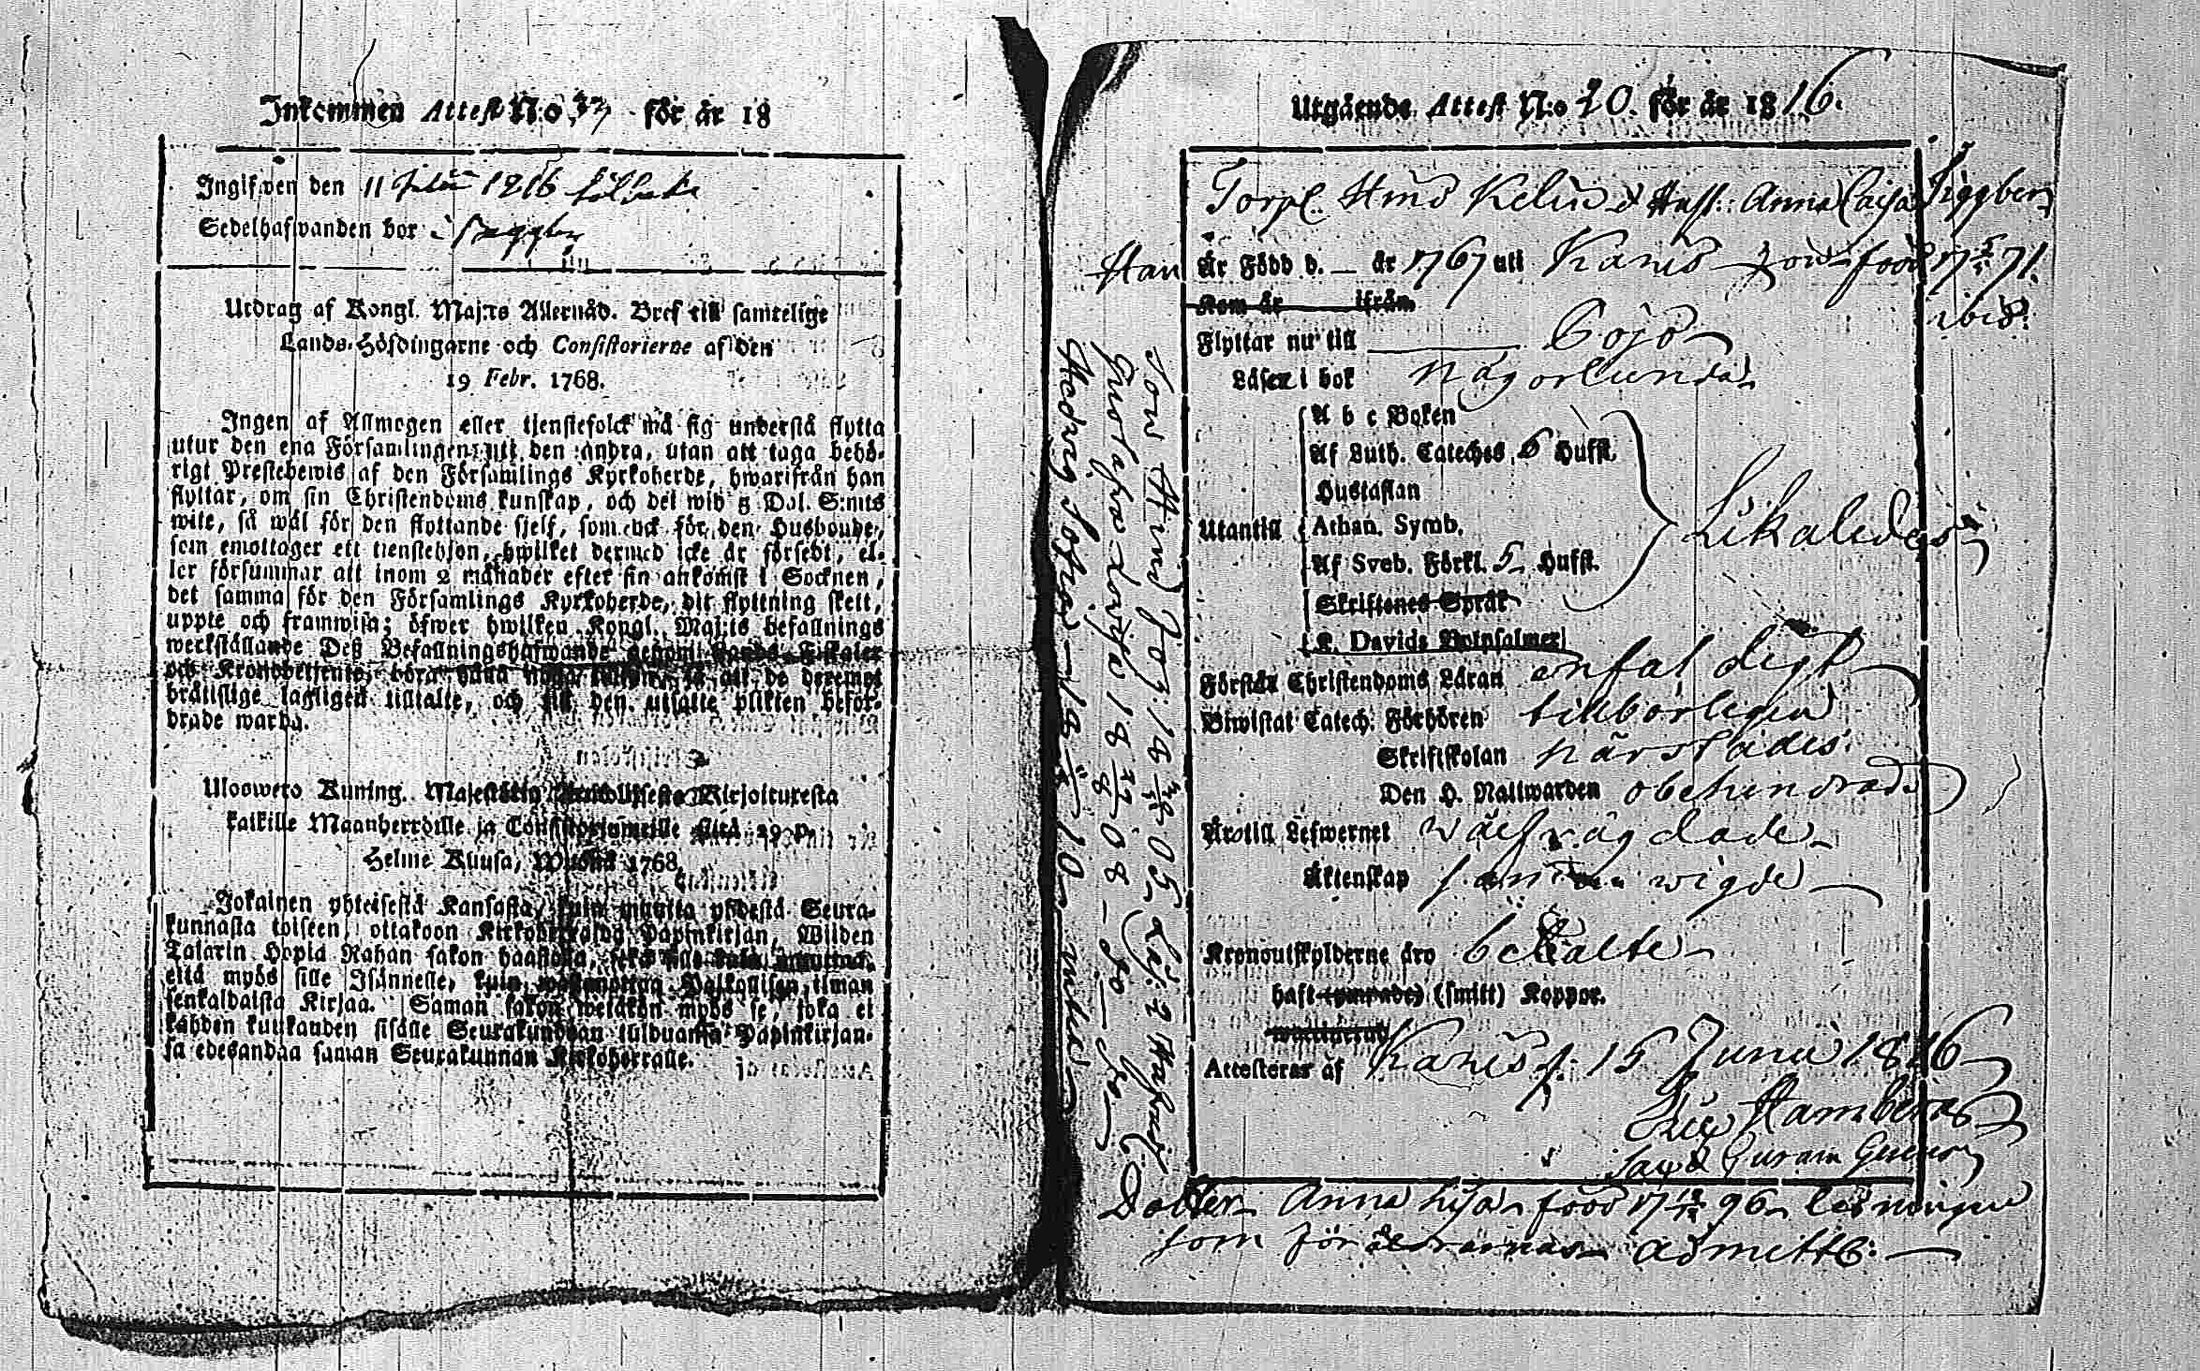 Inkommen Attest N:o 37 för år 18
Ingifwen den 11 Julii 1816
Sedelhafwanden bor i
Utdrag af Kongl. Maj:ts Allernåd. Bref till samtelige
Lands-Höfdingarne och Consistorierne af den
19 Febr. 1768.
Ingen af Allmogen eller tjenstefolck må sig understå flytta
utur den ena Församlingen uti den andra, utan att taga behö-
rigt Prestebewis af den Församlings Kyrkoherde, hwarifrån han
flyttar, om sin Christendoms kunskap, och det wid 3 Dal. S:mts
wite, så wäl för den flyttande sjelf, som ock för den Husbonde,
som emottager ett tienstehjon, hwilket dermed icke är försedt, el-
ler försummar att inom 2 månader efter sin ankomst i Socknen,
det samma för den Församlings Kyrkoherde, dit flyttning skett,
uppte och framwisa; öfwer hwilken Kongl. Maj:ts befallnings
werkställande Deß Befallningshafwande genom Lands-Fiskaler
och Kronobetjente, böra hålla noga så att de deremot
brätislige lagligen tilltalte, och till den utsatte plikten befor-
drade warda.
Ulosweto Kuning. Majestätin Kirjoituresta
kaikille Maanherroille ja Consistoriumeille siitä 19 p.
Helme Kuusa, Wuonna 1768.
Jokainen yhteisestä Kansasta, kuin muutta yhdestä Seura-
kunnasta toiseen, ottakoon Kirkoherralda Papinkirjan, Wiiden
Talarin Hopia Rahan sakon haastolla,
että myös sille Isännelle, kuin Palkollisen ilman
senkaldaista Kirjaa. Saman sakon wetäkön myös se, joka ei
kahden kuukauden sisälle Seurakundaan tulduansa Papinkirjan-
sa edesandaa saman Seurakunnan Kirkoherralle.
Utgående Attest N:o 20. för år 1816.
Torp. Hind Kelin & Hust: Anna Caisa Siggber
Han Är Född d. — år 1767 uti Karis hon född 17 71.
ibid:
Kom år ifrån
Flyttar nu till Pojo
Läser i bok någorlunda
A b c Boken
Af Luth. Cateches 6 Hufst.
Hustaflan
Utantill Athan. Symb. Likaledes
Af Sveb. Förkl. 5 Hufst.
Skriftenes Språk
K. Davids Botpsalmer
Förstår Christendoms Läran enfaldigt
Biwistat Catech. Förhören tillbörligen
Skriftskolan närstädes
Den H. Nattwarden obehindrade
Äro till Lefwernet wälfrägdade
Äktenskap wigde
Kronoutskylderne äro betalte
haft (ympade) (smitt) Koppor.
waccinerad
Attesteras af Karis 15 Junii 1816
Eric Hamberg
Son Hind Joz: 18 05
Gustafva Lovisa 18 08
Hedvig Sofia 18 10
Dotter Anna Lisa född 17 96 läsningen
som föräldrarnas admitt: